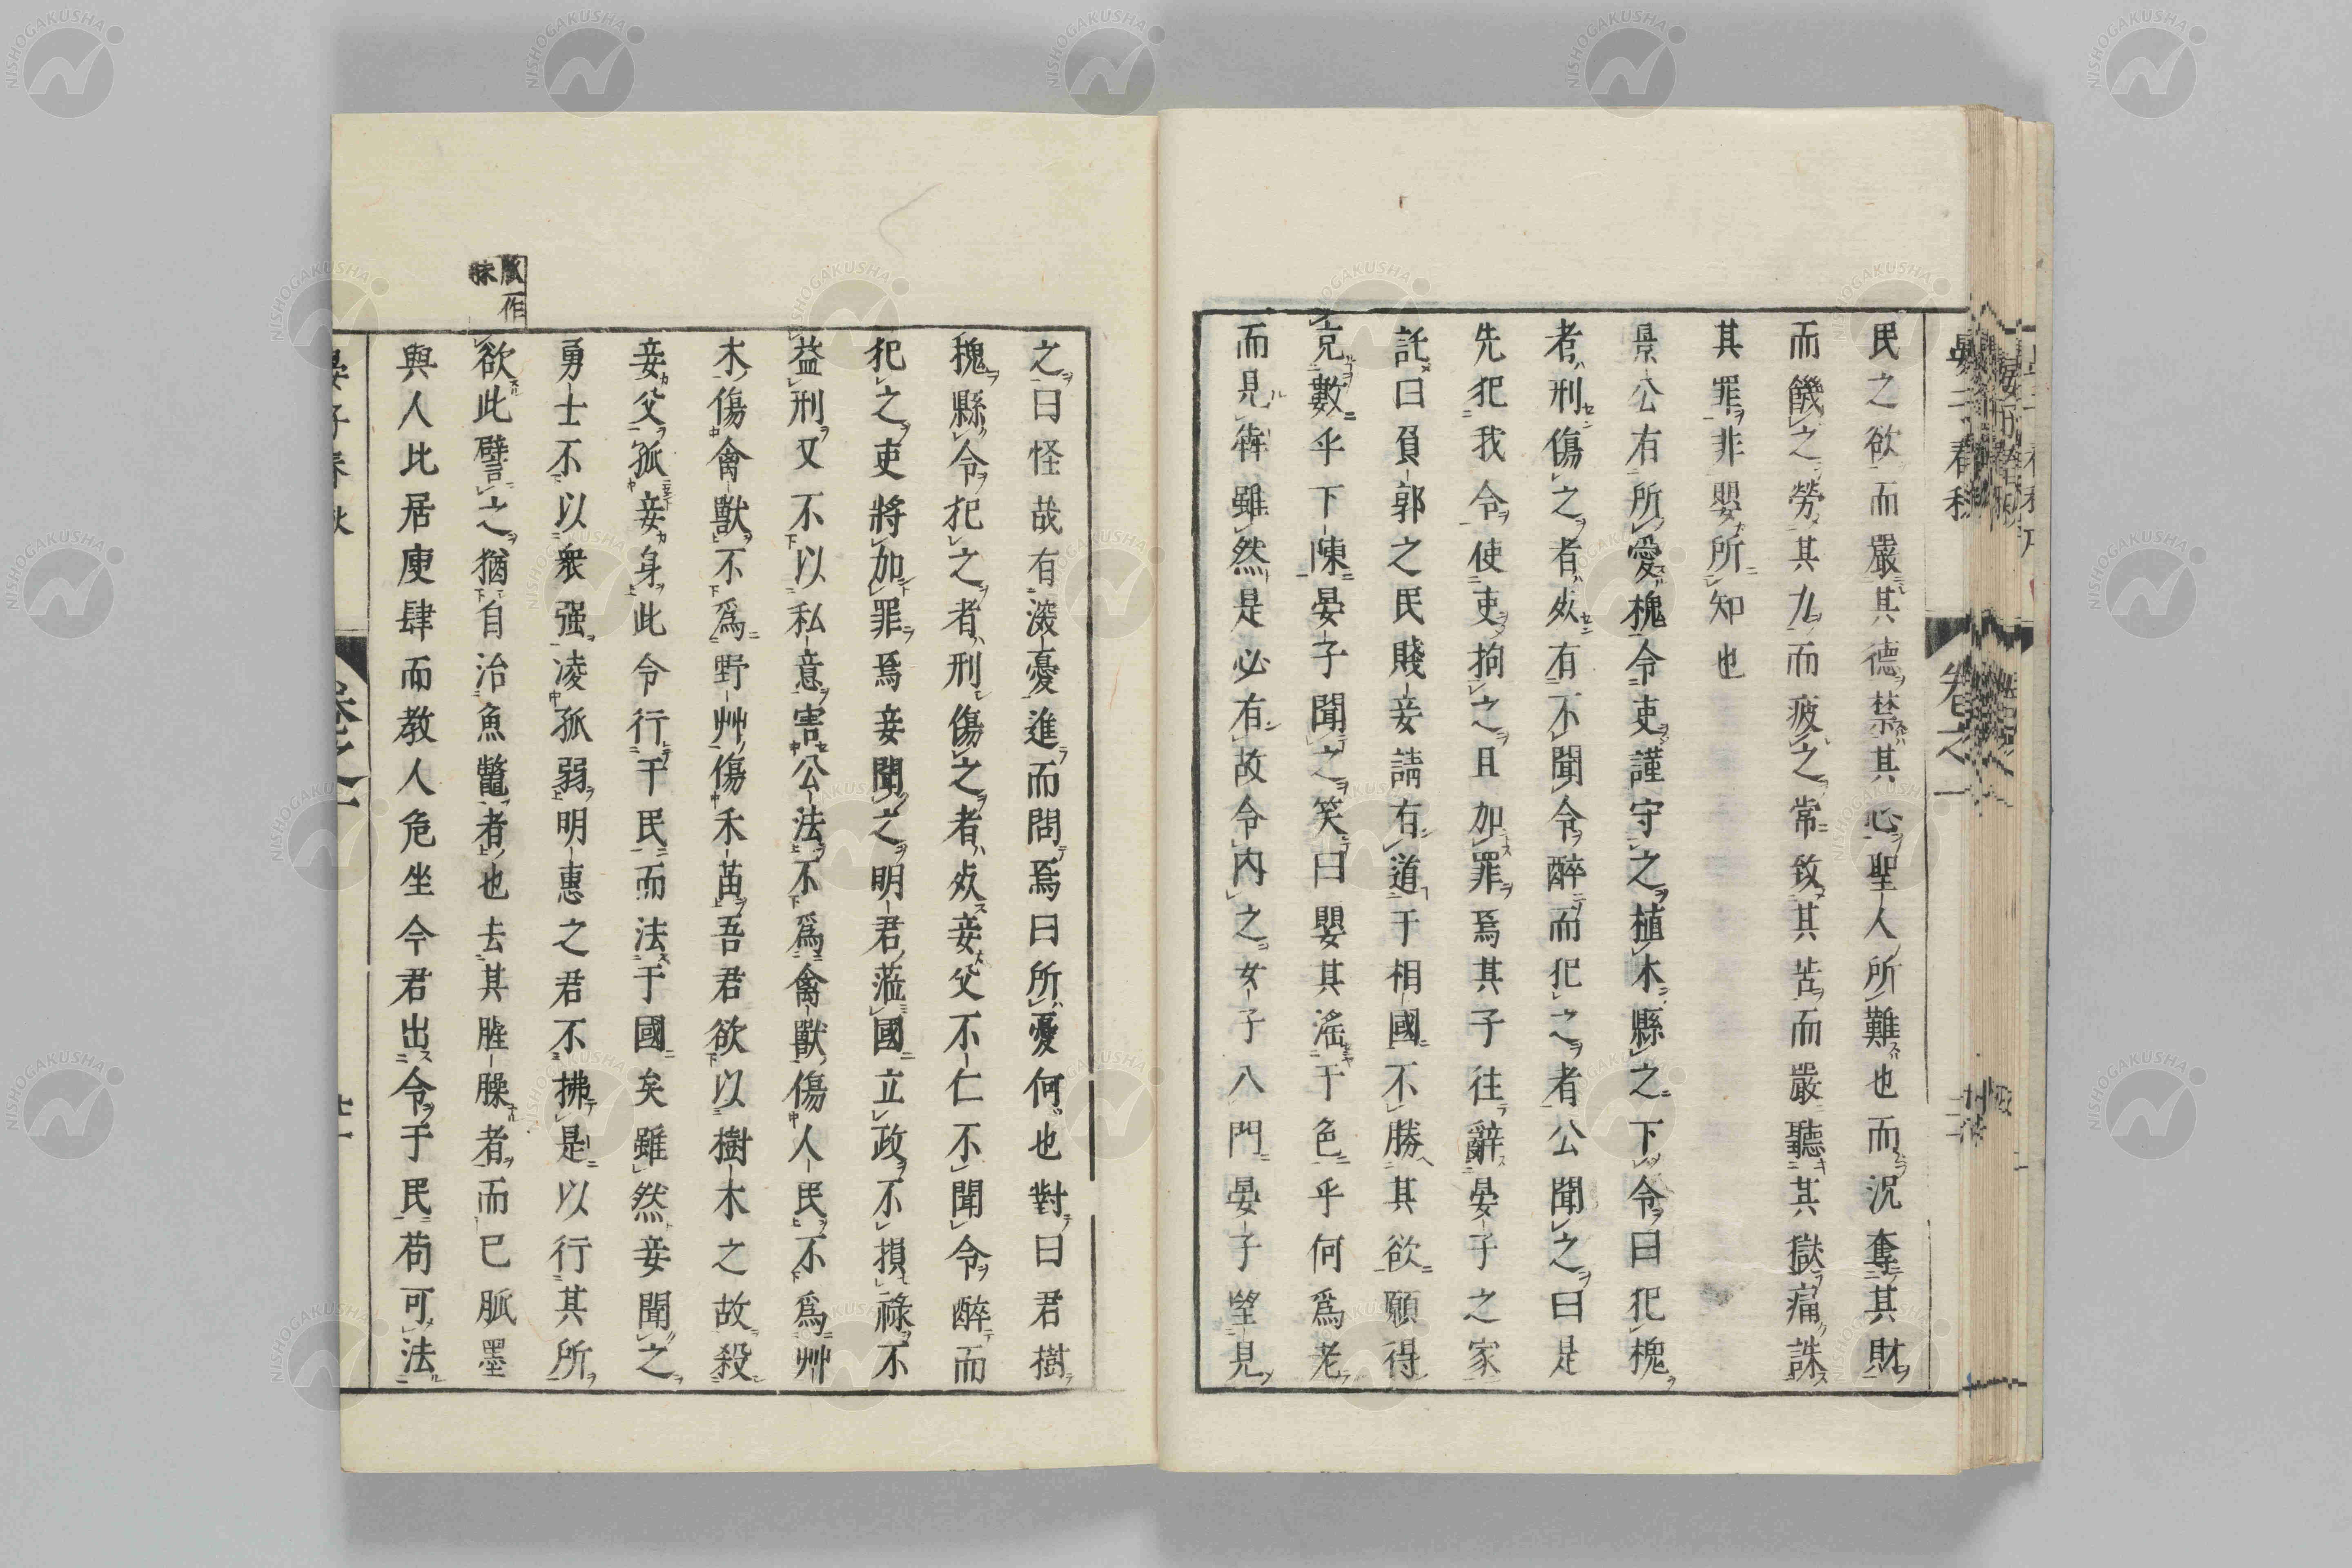 民之欲而嚴其德禁其心聖人所難也而况奪其財
而饑之勞其力而疲之常致其苦而嚴聽其獄痛誅
其罪非嬰所知也
景公有所愛槐令吏謹守之植木縣之下令曰犯槐
者刑傷之者㱙有不聞令醉而犯之者公聞之曰是
先犯我令使吏拘之且加罪焉其子往辭晏子之家
託曰負郭之民賤妾請有道于相國不勝其欲願得
充數乎下陳晏子聞之笑曰嬰其滛于色乎何爲老
而見犇雖然是必有故令内之女子入門晏子望見
之曰怪哉有深憂進而問焉曰所憂何也對曰君樹
槐縣令犯之者刑傷之者㱙妾父不仁不聞令醉而
犯之吏將加罪焉妾聞之明君蒞國立政不損祿不
益刑又不以私意害公法不爲禽獸傷人民不爲艸
木傷禽獸不爲野艸傷禾苗吾君欲以樹木之故殺
妾父孤妾身此令行于民而法于國矣雖然妾聞之
勇士不以衆强凌孤弱明惠之君不拂是以行其所
欲此譬之猶自治魚鼈者也去其腥臊者而巳脈墨
與人比居庾肆而教人危坐今君出令于民苟可法
作
晏子春秋
卷之一
NISHOGAKUSHA